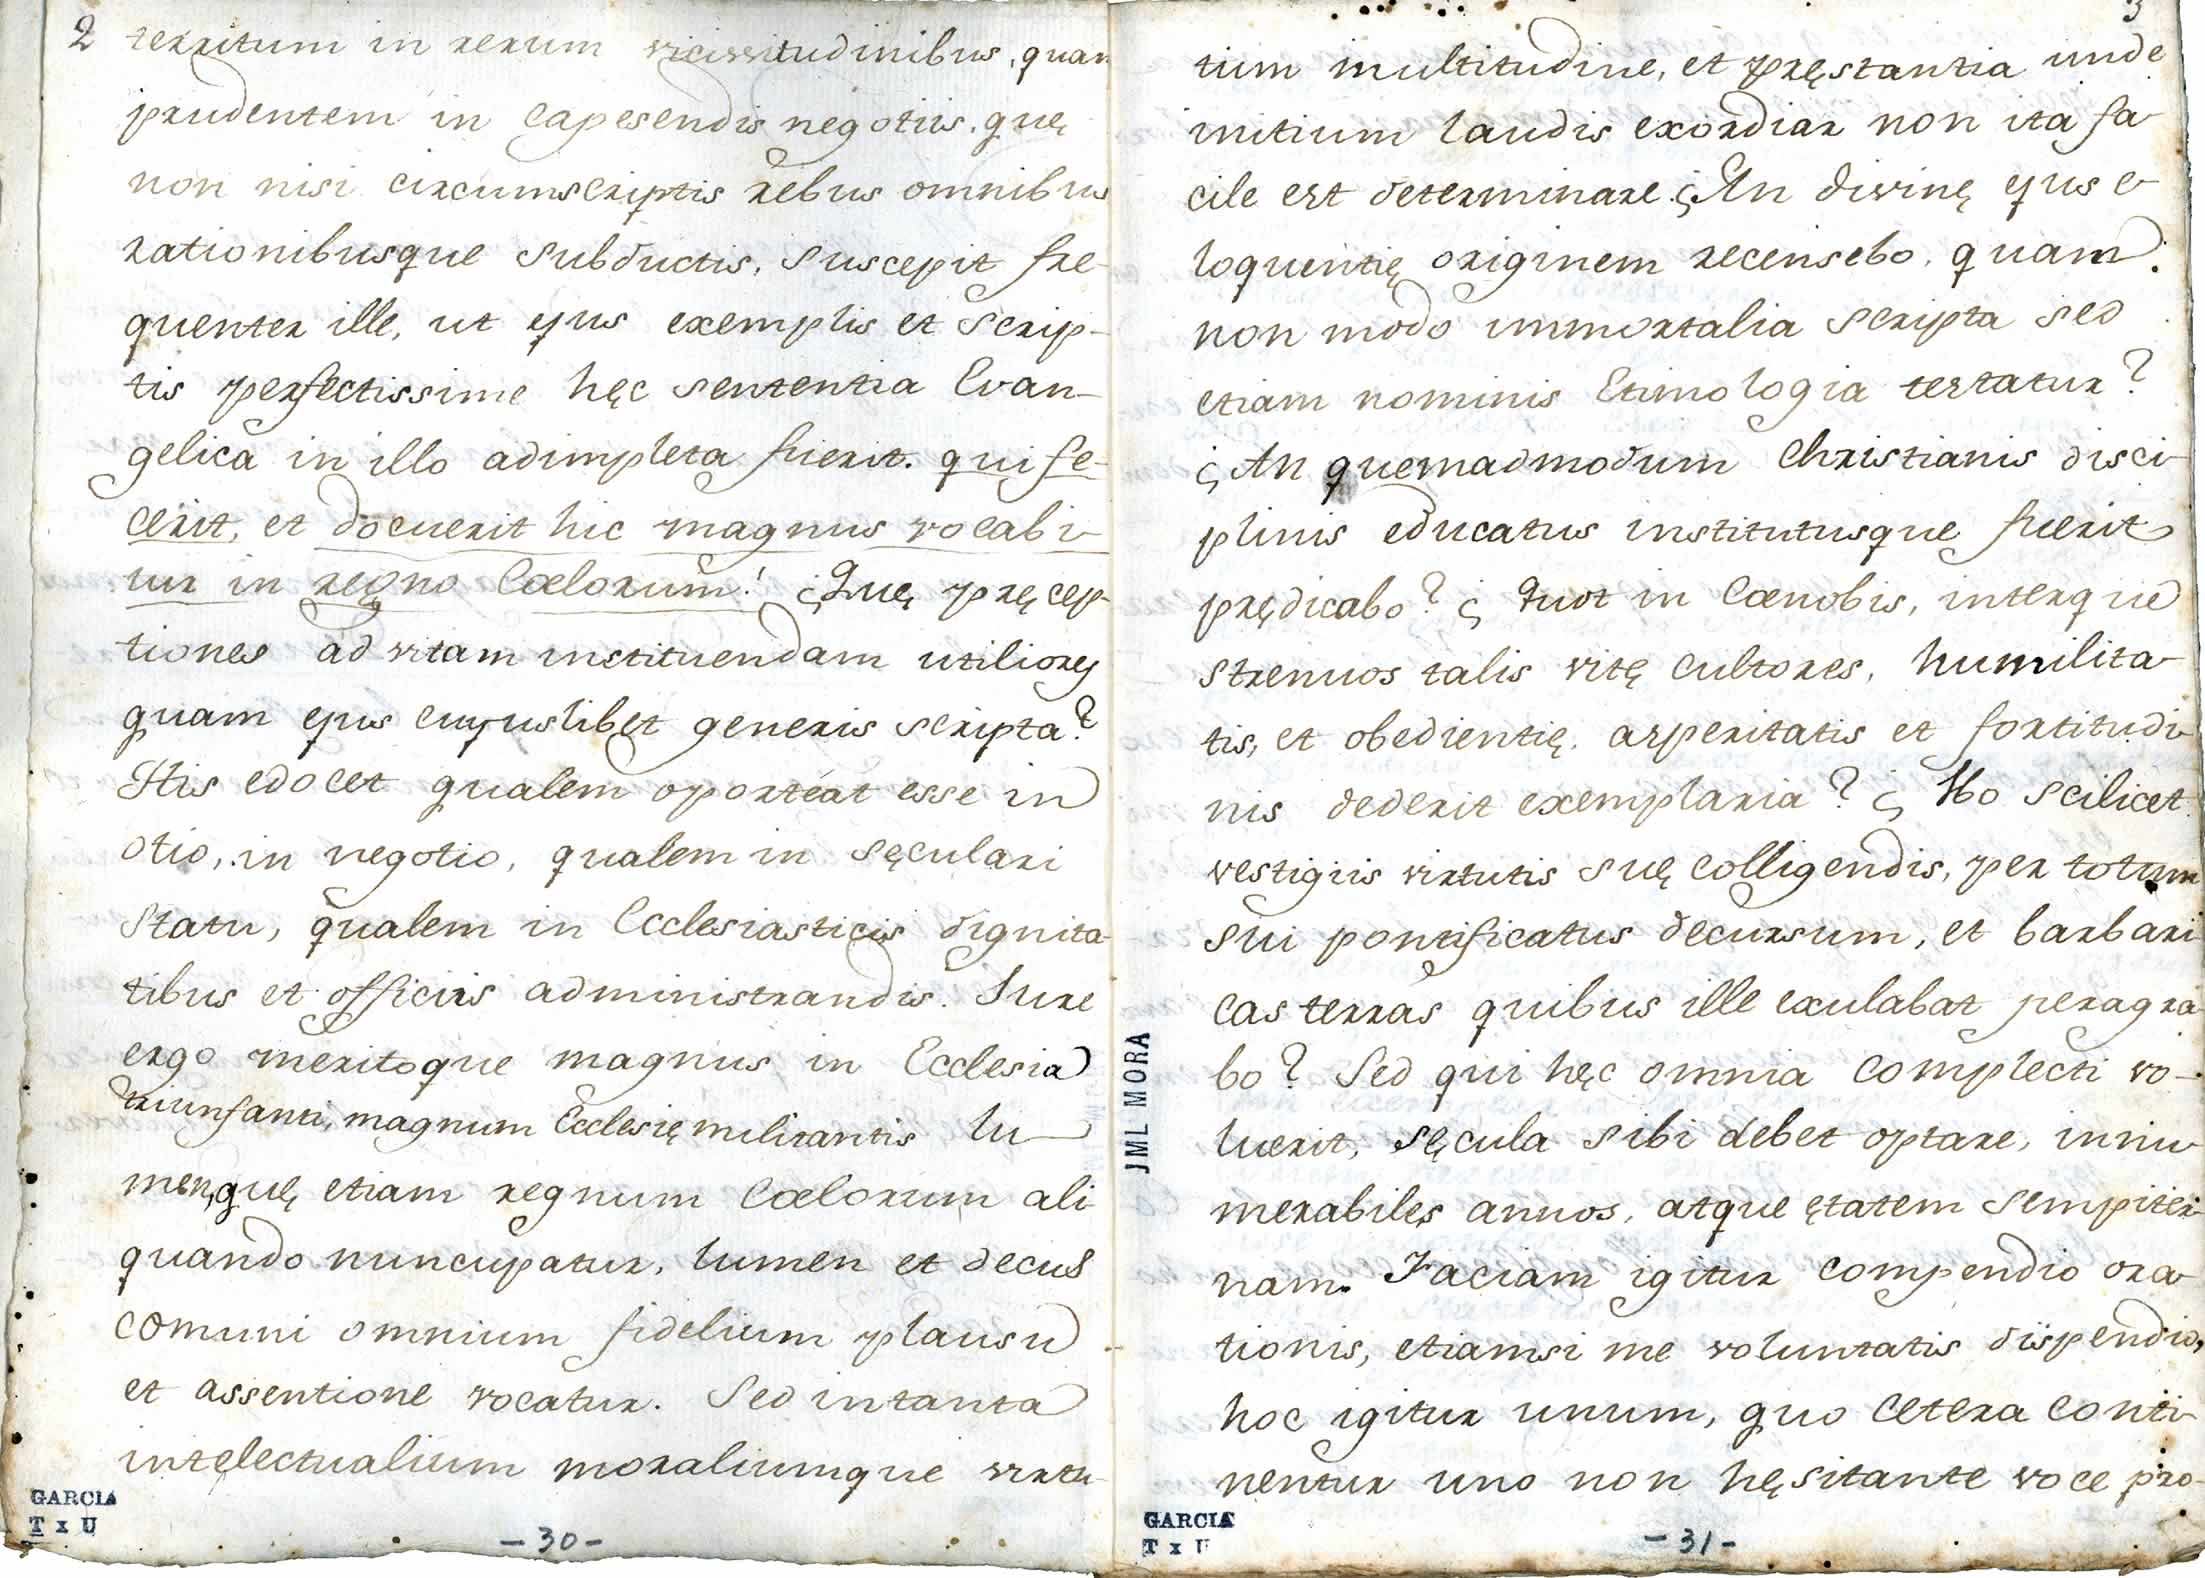 2 territum in rerum vicissitudinibus, quam
prudentem in capesendis negotiis, quę
non nisi circumscriptis rebus omnibus
rationibusque subductis, suscepit fre-
quenter ille, ut ejus exemplis et scrip-
tis perfectissime hęc sententia Evan-
gelica in illo adimpleta fuerit. qui fe-
cerit, et docuerit hic magnus vocabi-
tur in regno Cœlorum! ¿Quę pręcep-
tiones ad vitam instituendam utiliores
quam ejus cujuslibet generis scripta?
His edocet qualem oporteat esse in
otio, in negotio, qualem in sęculari
statu, qualem in Ecclesiasticis dignita-
tibus et officiis administrandis. Jure
ergo meritoque magnus in Ecclesia
triunfanti, magnum Ecclesię militantis lu-
men, quę etiam regnum Cœlorum ali-
quando nuncupatur, lumen et decus
comuni omnium fidelium plausu
et assentione vocatur. Sed in tanta
intelectualium moraliumque virtu-
GARCIA
T x U
-30-
3
tium multitudine, et pręstantia unde
initium laudis exordiar non ita fa-
cile est determinare. ¿An divinę ejus e-
loquentię originem recensebo, quam
non modo immortalia scripta sed
etiam nominis Etimologia testatur?
¿An quemadmodum Christianis disci-
plinis educatus institutusque fuerit
prędicabo? ¿Quot in Cœnobis, interque
strenuos talis vitę cultores, humilita-
tis, et obedientię, asperitatis et fortitudi-
nis dederit exemplaria? ¿ Ho scilicet
vestigiis virtutis suę colligendis, per totum
sui pontificatus decursum, et barbari
cas terras quibus ille exulabat peragra-
bo? Sed qui hęc omnia complecti vo-
luerit, sęcula sibi debet optare, innu-
merabiles annos, atque ętatem sempiter-
nam. Faciam igitur compendio ora-
tionis, etiamsi me voluntatis dispendio,
hoc igitur unum, quo cetera conti-
nentur uno non hęsitante voce pro-
JML MORA
GARCIA
T x U
-31-